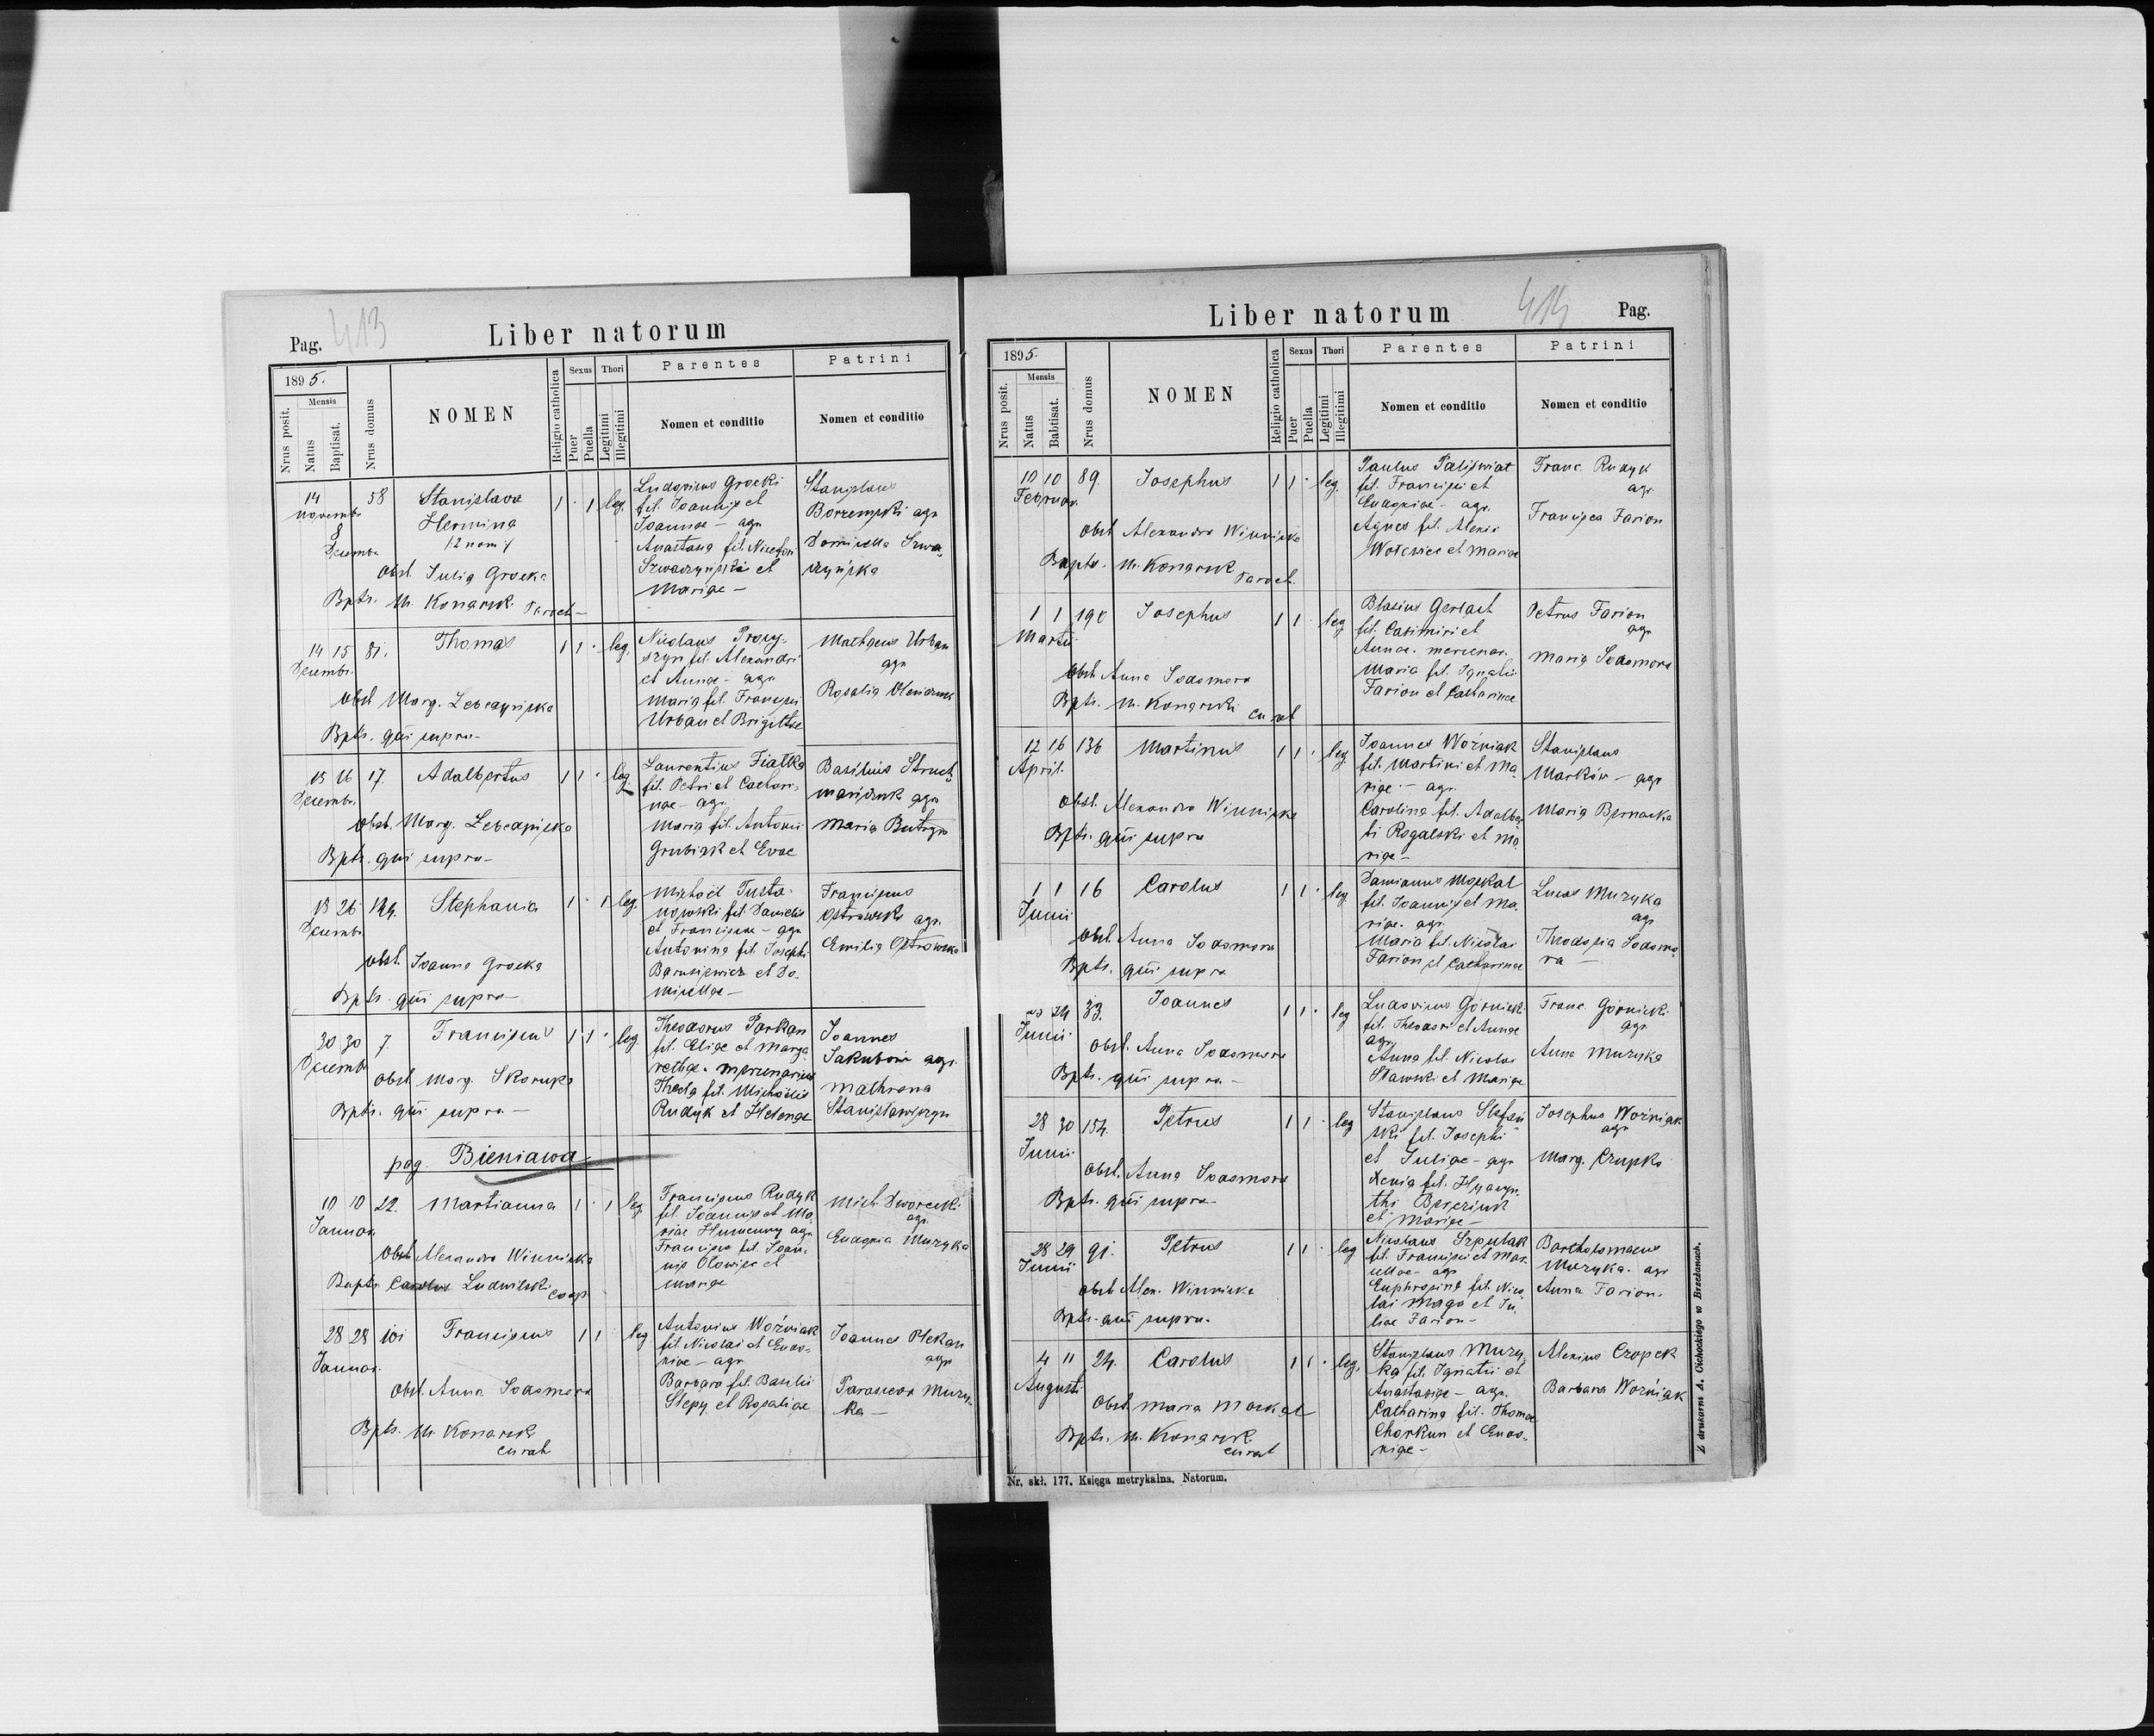 Pag. 413
Liber natorum
1895.
Nrus posit.
Mensis
Natus
Baptisat.
Nrus domus
NOMEN
Religio catholica
Sexus
Puer
Puella
Thori
Legitimi
Illegitimi
Parentes
Nomen et conditio
Patrini
Nomen et conditio
14 58 Stanislava 1 · 1 leg.
novembr.
8
Decembr.
Hermina
12 nom
Obst. Julia Grocka
Bpts. M. Konarsk. Paroch-
Ludovicus Grocki
fil. Joannis et
Joannae - agr.
Anastasia fil. Nicefori
et
Mariae -
Stanislaus
agr
14 15 81. Thomas 1 1 · leg.
Decembr.
Obst Marg.
Bpts. qui supra-
Nicolaus Procy-
szyn fil. Alexandri
et Annae - agr
Maria fil. Francisci
Urban et Brigittae
Mathaeus Urban
agr
Rosalia
15 16 17. Adalbertus 1 1 · leg
Decembr.
Obst. Marg.
Bpts. qui supra-
Laurentius Fiałka
fil. Petri et Cathari-
nae - agr.
Maria fil. Antonii
et Evae
Basilius
agr
Maria
18 26 Stephania 1 · 1 leg.
Decembr.
obst. Joanna Grocka
Bpts. qui supra-
Michaël Tusta-
nowski fil. Danielis
et Franciscae - agr
Antonina fil. Josephi
et Do-
micellae -
Franciscus
Ostrowski agr.
Emilia Ostrowska
30 30 7. Franciscus 1 1 · leg.
Decembr
Obst Marg. Skorupa
Bpts. qui supra. -
Theodorus Parkan
fil. Eliae et Marga
rethae. mercenarius
Thecla fil. Michaëlis
Rudyk et Helenae
Joannes
agr.
Mathrona
Stanisławiszyn
pag. Bieniawa
10 10 22. Martianna 1 · 1 leg.
Januar.
Obst Alexandra Winnicka
Bapts Carolus Ludwilski coop.
Franciscus Rudyk
fil. Joannis et Ma
riae agr
Francisca fil. Joan-
nis et
Mariae
Mich. Dworecki
agr.
Eudoxia Muzyka
28 28 101 Franciscus 1 1 leg
Januar.
Obst. Anna Sodomora
Bpts. M. Konarsk
curat
Antonius Woźniak
fil. Nicolai et Eudo-
xiae - agr
Barbara fil. Basilii
Slepy et Rosaliae
Joannes Plekan
agr
Parascewa Muzy-
ka -
Liber natorum
414 Pag.
1895.
Nrus posit.
Mensis
Natus
Babtisat.
Nrus domus
NOMEN
Religio catholica
Sexus
Puer
Puella
Thori
Legitimi
Illegitimi
Parentes
Nomen et conditio
Patrini
Nomen et conditio
10 10 89. Josephus 1 1 · leg.
Februar.
Obst Alexandra Winnicka
Bapts. M. Konarsk Paroch.
Paulus
fil. Francisci et
Eudoxiae - agr.
Agnes fil. Alexii
et Mariae
Franc. Rudyk
agr.
Francisca Farion
1 1 190 Josephus 1 1 leg
Martii
Obst Anna Sodomora
Bpts. M. Konarski curat
Blasius Gerlach
fil. Casimiri et
Annae. mercenar.
Maria fil. Ignatii
Farion et Catharinae
Petrus Farion
agr
Maria Sodomora
12 16 136 Martinus 1 1 · leg.
April.
Obst. Alexandra Winnicka
Bpts. qui supra
Joannes Woźniak
fil. Martini et Ma
riae - agr.
Carolina fil. Adalber
ti Rogalski et Ma
riae -
Stanislaus
Marków - agr
Maria
1 1 16 Carolus 1 1 · leg.
Junii
Obst. Anna Sodomora
Bpts. qui supra
Damianus Moskal
fil. Joannis et Ma.
riae. agr.
Maria fil. Nicolai
Farion et Catharinae
Lucas Muzyka
agr
Theodosia Sodomo-
ra -
24 33. Joannes 1 1 · leg
Junii
Obst. Anna Sodomora
Bpts. qui supra -
Ludovicus Górnicki
fil. Theodori et Annae
agr.
Anna fil. Nicolai
Sławski et Mariae
Franc. Górnicki
agr.
Anna Muzyka
28 30 154. Petrus 1 1 · leg
Junii
Obst. Anna Sodomora
Bpts. qui supra-
Stanislaus Stefań
ski fil. Josephi
et Juliae - agr
Xenia fil. Hyacyn-
thi
et Mariae -
Josephus Woźniak
agr
Marg. Czupka
28 29 91. Petrus 1 1 leg
Junii
Obst Alex. Winnicka
Bpts. qui supra.
Nicolaus Szpulak
fil. Francisci et Mar-
cellae - agr
Euphrosina fil. Nico
lai Maga et Ju-
liae Farion -
Bartholomaeus
Muzyka. agr
Anna Farion.
4 11 24. Carolus 1 1 · leg.
Augusti
Obst. Maria Moskal
Bpts. M. Konarsk.
curat
Stanislaus Muzy
ka fil. Ignatii et
Anastasiae - agr.
Catharina fil. Thomae
Charkun et Eudo-
xiae -
Alexius Czopek
Barbara Woźniak
Nr. skł. 177. Księga metrykalna. Natorum.
Z drukarni A. Cichockiego w Brzeżanach.